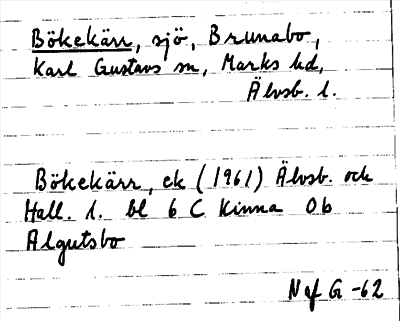 Bökekärr, sjö, Brunabo,
Karl Gustavs sn, Marks hd,
Älvsb. l.
Bökekärr, ek (1961) Älvsb. och
Hall. l. bl 6 C Kinna 0b
Algutsbo
N of G -62